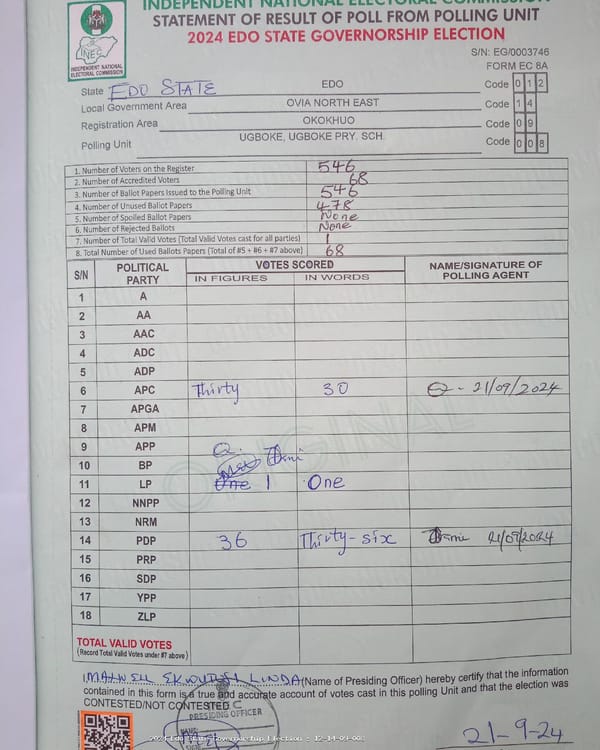 INDEPENDENT NATIONAL ELECTORAL COMMISSION
STATEMENT OF RESULT OF POLL FROM POLLING UNIT
2024 EDO STATE GOVERNORSHIP ELECTION
INEC
INDEPENDENT NATIONAL
ELECTORAL COMMISSION
S/N: EG/0003746
FORM EC 8A
State EDO STATE EDO Code 0 1 2
Local Government Area OVIA NORTH EAST Code 1 4
Registration Area OKOKHUO Code 0 9
Polling Unit UGBOKE, UGBOKE PRY. SCH. Code 0 0 8
1. Number of Voters on the Register 546
2. Number of Accredited Voters 68
3. Number of Ballot Papers Issued to the Polling Unit 546
4. Number of Unused Ballot Papers 478
5. Number of Spoiled Ballot Papers None
6. Number of Rejected Ballots None
7. Number of Total Valid Votes (Total Valid Votes cast for all parties) 1
8. Total Number of Used Ballots Papers (Total of #5 + #6 + #7 above) 68
S/N POLITICAL PARTY VOTES SCORED NAME/SIGNATURE OF POLLING AGENT
IN FIGURES IN WORDS
1 A
2 AA
3 AAC
4 ADC
5 ADP
6 APC Thirty 30 21/09/2024
7 APGA
8 APM
9 APP
10 BP
11 LP One 1 One
12 NNPP
13 NRM
14 PDP 36 Thirty-six 21/09/2024
15 PRP
16 SDP
17 YPP
18 ZLP
ORIGINAL
TOTAL VALID VOTES
(Record Total Valid Votes under #7 above)
I, LINDA (Name of Presiding Officer) hereby certify that the information
contained in this form is a true and accurate account of votes cast in this polling Unit and that the election was
CONTESTED/NOT CONTESTED
PRESIDING OFFICER
21-9-24